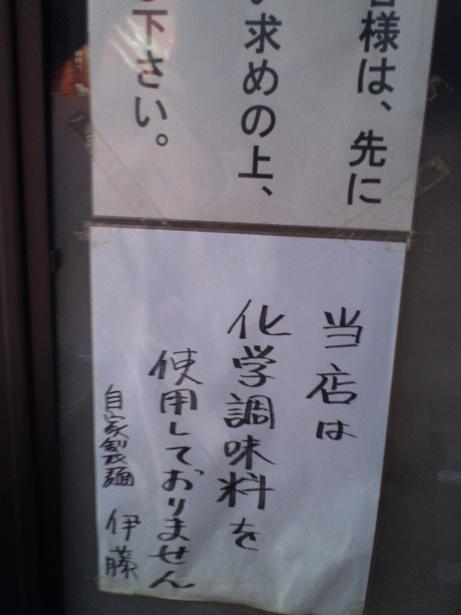 客様は、先に
い求めの上、
下さい。
当店は
化学調味料を
使用しておりません
自家製麺 伊藤